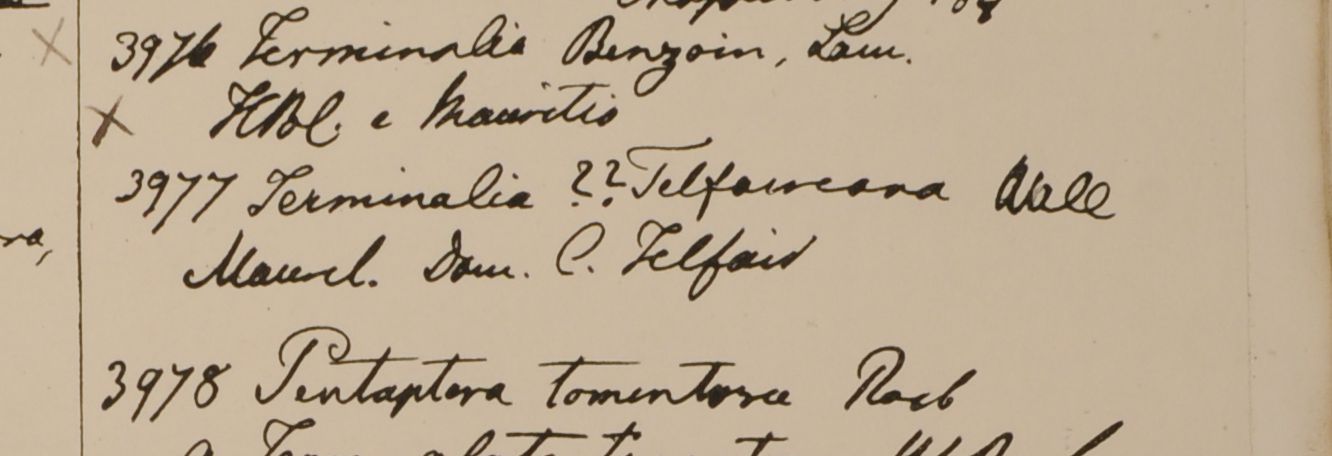 3976 Terminalia Benzoin, Lam.
HBC. e Mauritio
3977 Terminalia ?? Telfaireana Wall
Dom. C. Telfair
3978 Pentaptera tomentosa Roxb